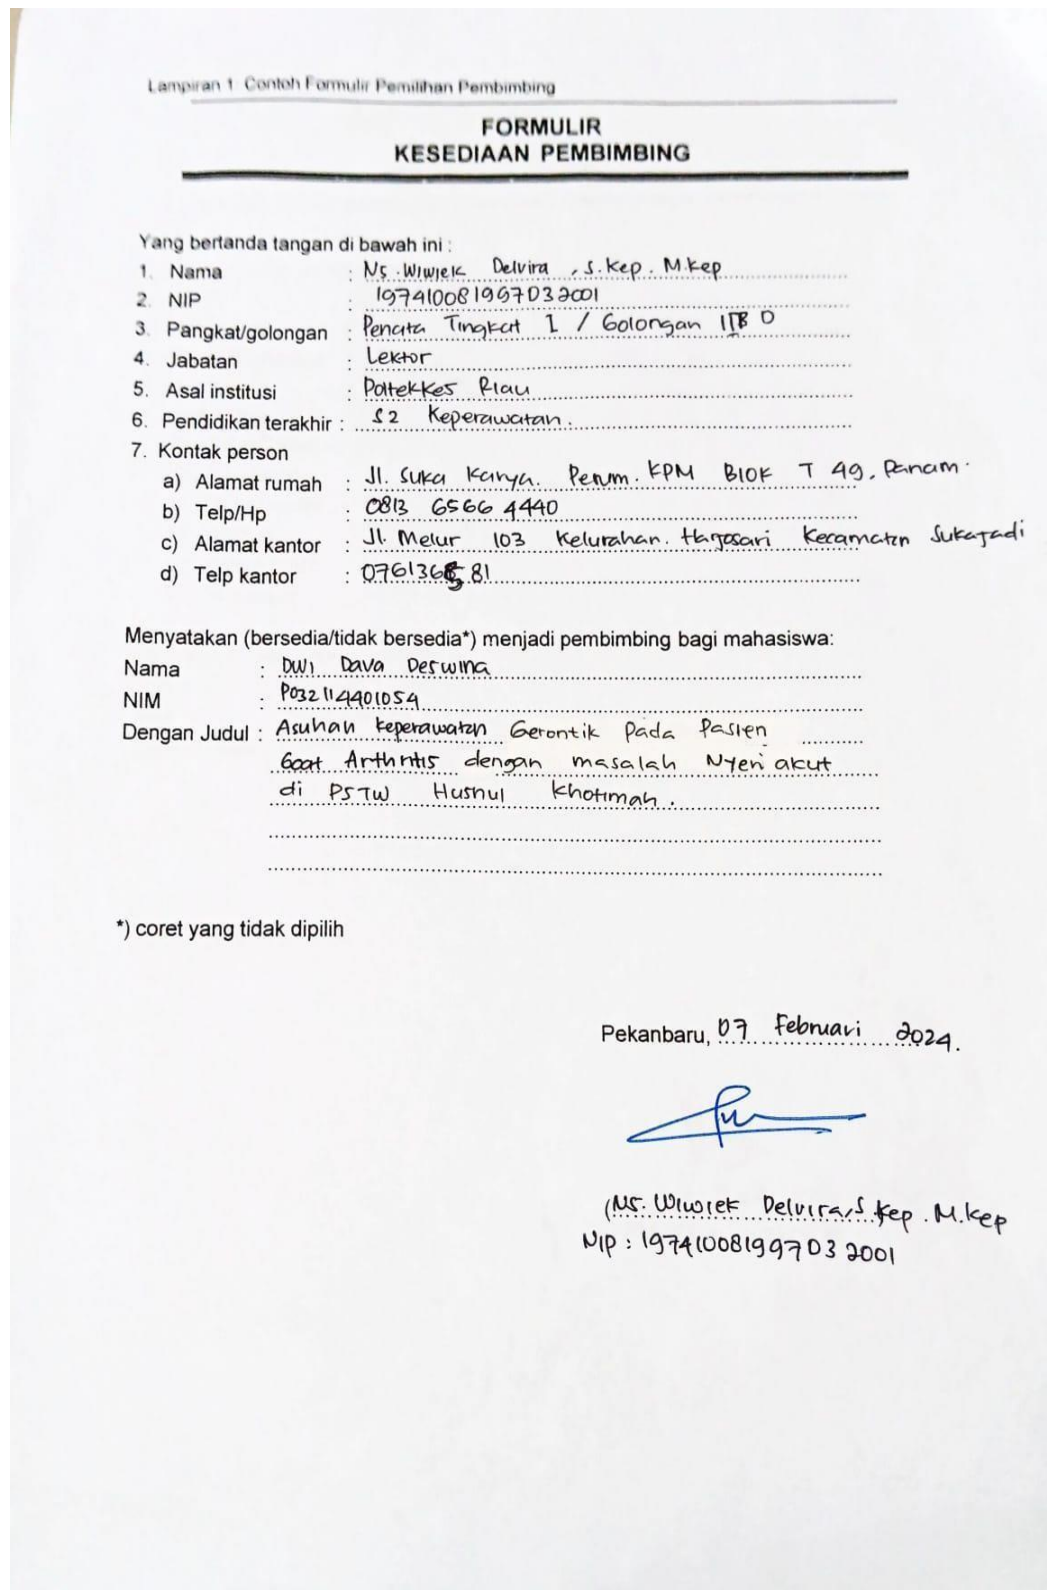 Lampiran 1 Contoh Formulir Pemilihan Pembimbing
FORMULIR
KESEDIAAN PEMBIMBING
Yang bertanda tangan di bawah ini :
1. Nama : Ns. Wiwiek Delvira, S.Kep. M.Kep
2. NIP : 197410081997032001
3. Pangkat/golongan : Penata Tingkat I / Golongan D
4. Jabatan : Lektor
5. Asal institusi : Poltekkes Riau
6. Pendidikan terakhir : S2 Keperawatan.
7. Kontak person
a) Alamat rumah : Jl. Suka Karya. Perum. KPM Blok T 49, Panam.
b) Telp/Hp : 0813 6566 4440
c) Alamat kantor : Jl. Melur 103 Kelurahan. Harjosari Kecamatan Sukajadi
d) Telp kantor :
Menyatakan (bersedia/tidak bersedia*) menjadi pembimbing bagi mahasiswa:
Nama : Dwi Dava Deswina
NIM : P032114401054
Dengan Judul : Asuhan Keperawatan Gerontik Pada Pasien
Goat Arthritis dengan masalah Nyeri akut
di PSTW Husnul Khotimah.
*) coret yang tidak dipilih
Pekanbaru, 07 Februari 2024.
(Ns. Wiwiek Delvira, S.Kep. M.Kep
NIP : 197410081997032001